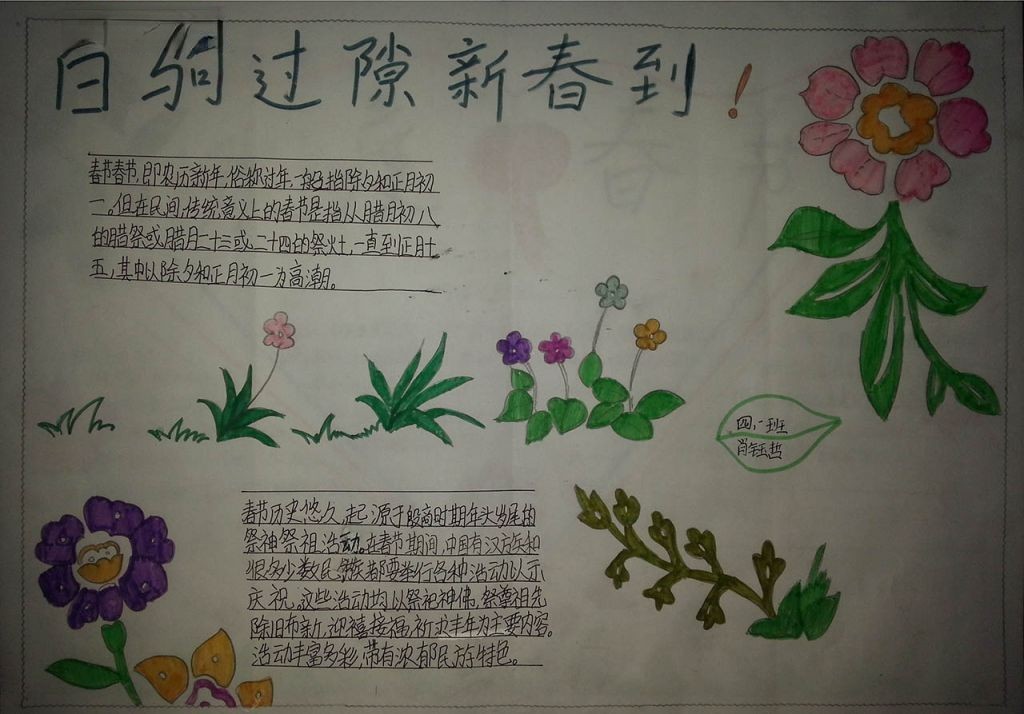 白驹过隙新春到！
春节春节,即农历新年,俗称过年,一般指除夕和正月初
一。但在民间,传统意义上的春节是指从腊月初八
的腊祭或腊月二十三或二十四的祭灶,一直到正月十
五,其中以除夕和正月初一为高潮。
四,一班
肖钰哲
春节历史悠久,起源于殷商时期年头岁尾的
祭神祭祖活动。在春节期间,中国有汉族和
很多少数民族都要举行各种活动以示
庆祝。这些活动均以祭祀神佛,祭奠祖先
除旧布新,迎禧接福,祈求丰年为主要内容。
活动丰富多彩,带有浓郁民族特色。